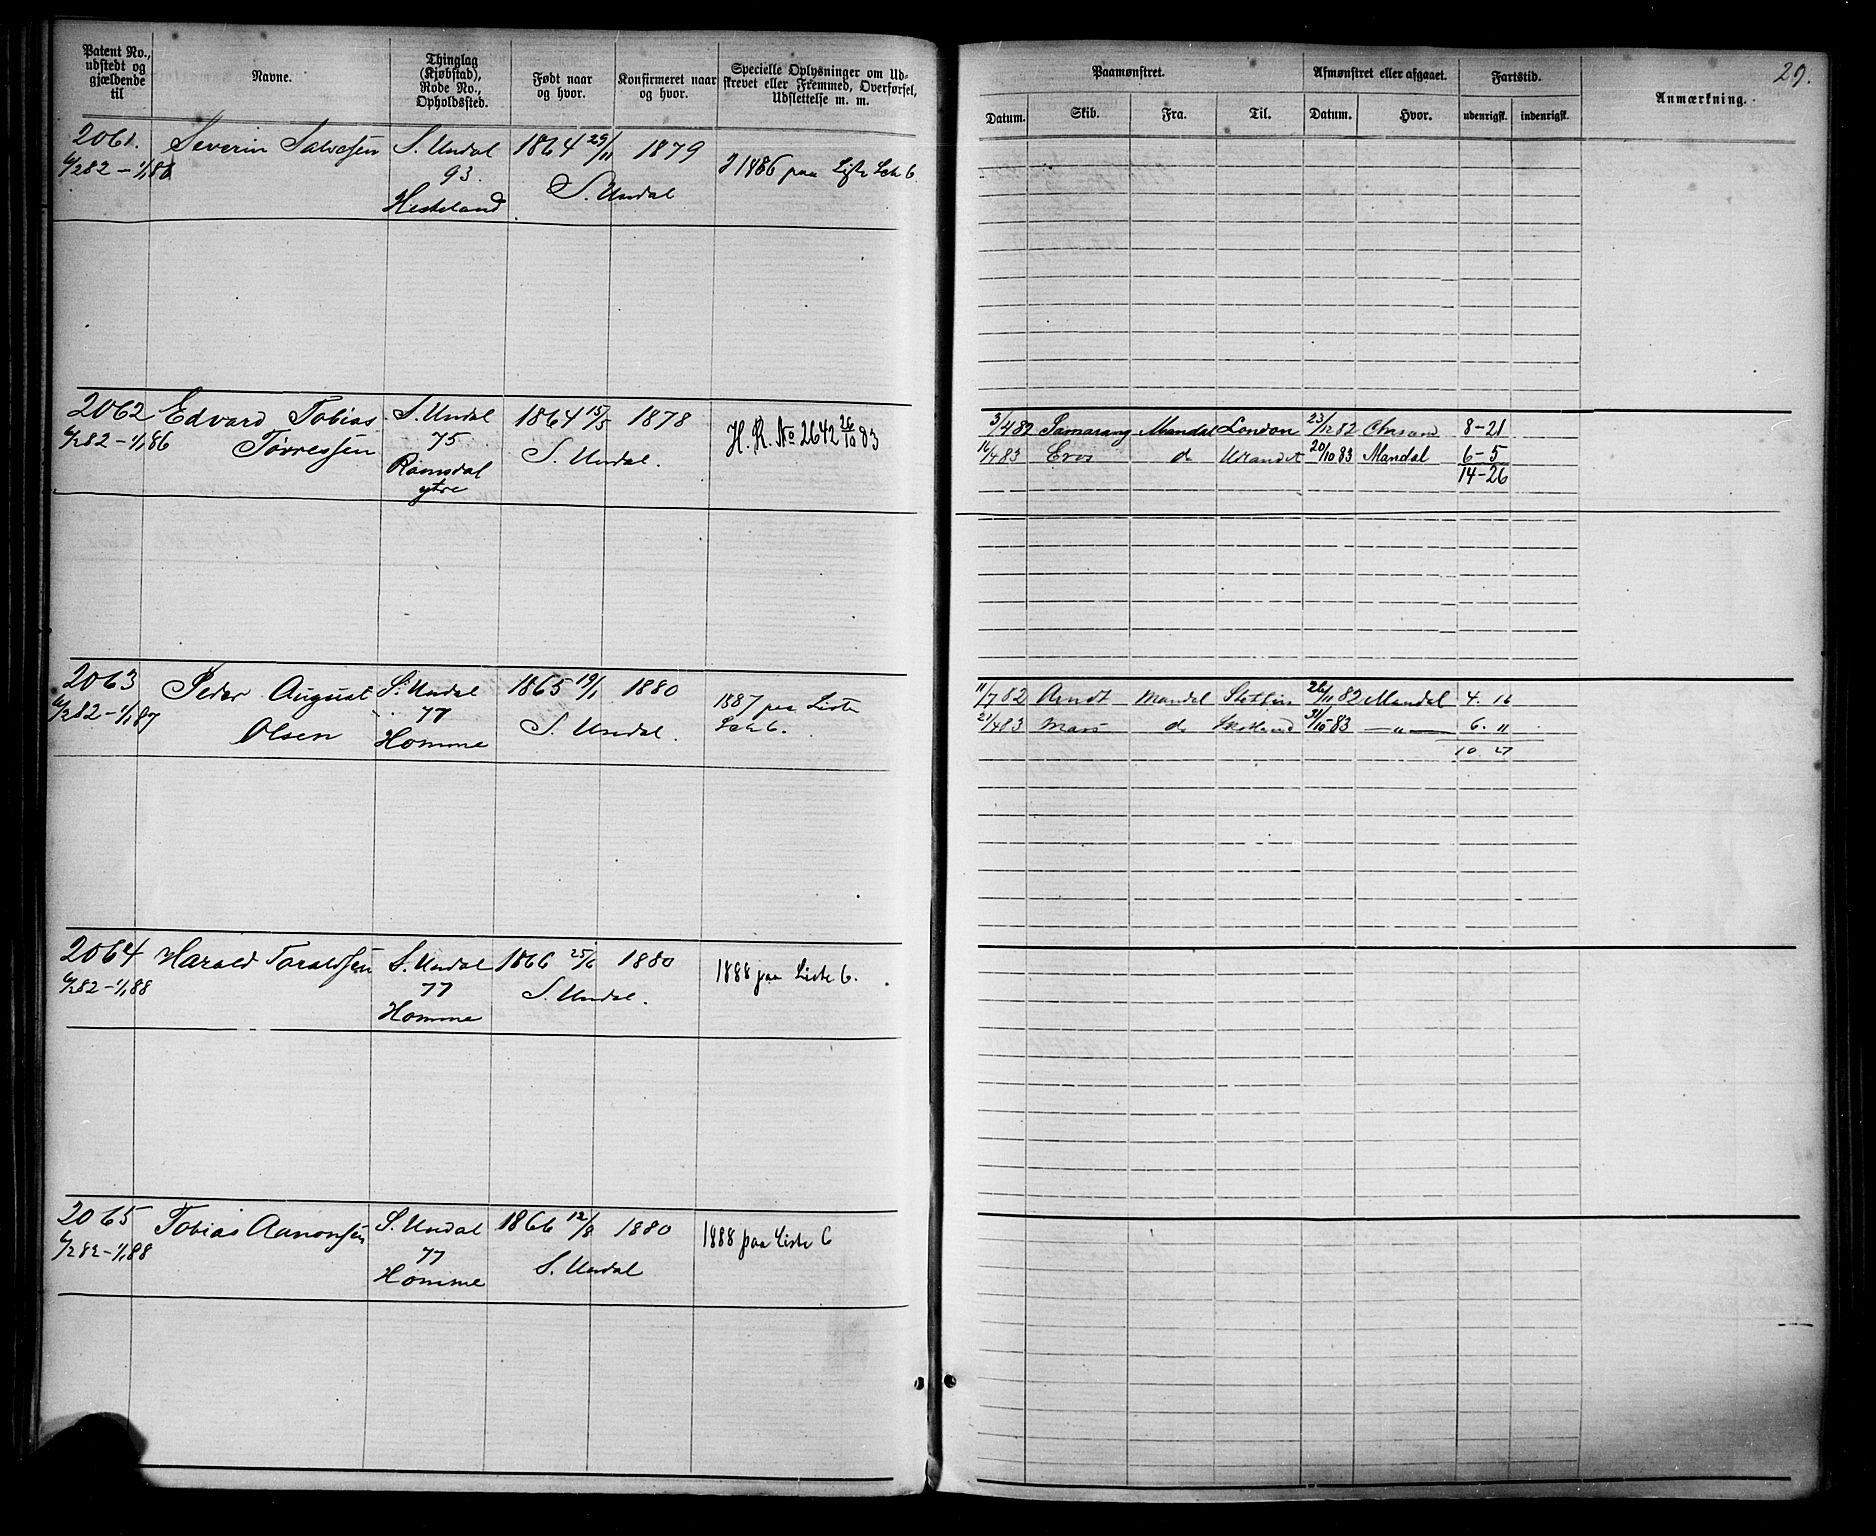 29.
Patent No., udstedt og gjældende til
Navne.
Thinglag (Kjøbstad), Rode No., Opholdssted.
Født naar og hvor.
Konfirmeret naar og hvor.
Specielle Oplysninger om Udskrevet eller Fremmed, Overførsel, Udslettelse m. m.
Paamønstret.
Afmønstret eller afgaaet.
Fartstid.
Anmærkning.
Datum. Skib. Fra. Til. Datum. Hvor. udenrigsk. indenrigsk.
2061. Severin Salvesen S. Undal 1864 29/11 1879
6/2 82 – 1/1 86 93. S. Undal I 1886 paa Liste Ltr 6.
Hesteland
2062 Edvard Tobias S. Undal 1864 15/5 1878 H. R. No 2642 26/10 83
6/2 82 – 1/1 86 Tørressen 75 S. Undal.
Ramsdal
ytre
3/4 82 Samarang Mandal London 23/12 82 Chrsand 8-21
16/4 83 Eros do 20/10 83 Mandal 6-5
14-26
2063 Peder August S. Undal 1865 19/1 1880 1887 paa Liste
6/2 82 – 1/1 87 Olsen 77 S. Undal. Ltr 6.
Homme
11/7 82 Arndt Mandal Stettin 26/11 82 Mandal 4. 16
21/4 83 Mars do Skotland 31/10 83 — " — 6. 11
10. 27
2064 Harald Toraldsen S. Undal 1866 25/6 1880 1888 paa Liste 6.
6/2 82 – 1/1 88 77 S. Undal.
Homme
2065 Tobias Aanonsen S. Undal 1866 12/8 1880 1888 paa Liste 6
6/2 82 – 1/1 88 77 S. Undal
Homme